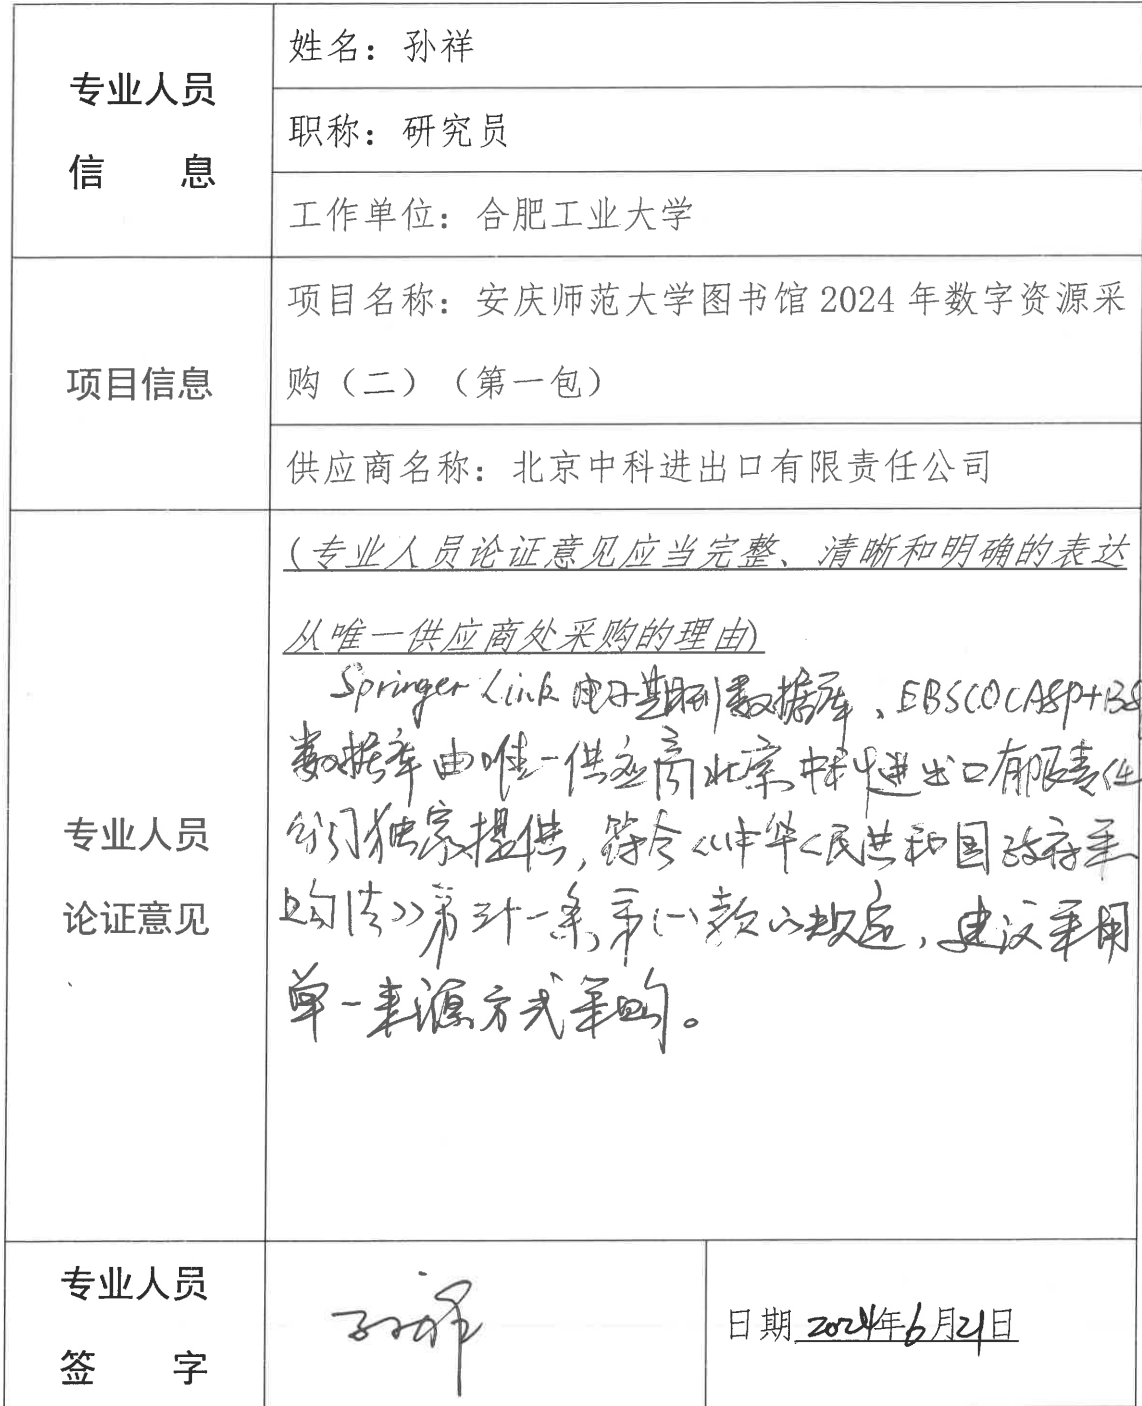 专业人员
信 息
姓名：孙祥
职称：研究员
工作单位：合肥工业大学
项目信息
项目名称：安庆师范大学图书馆 2024 年数字资源采
购（二）（第一包）
供应商名称：北京中科进出口有限责任公司
专业人员
论证意见
(专业人员论证意见应当完整、清晰和明确的表达
从唯一供应商处采购的理由)
Springer Link 电子期刊数据库、EBSCO(ASP+BS
数据库由唯一供应商北京中科进出口有限责任
公司独家提供，符合《中华人民共和国政府采
购法》第三十一条第(一)款的规定，建议采用
单一来源方式采购。
专业人员
签 字
孙祥
日期 2024年6月21日